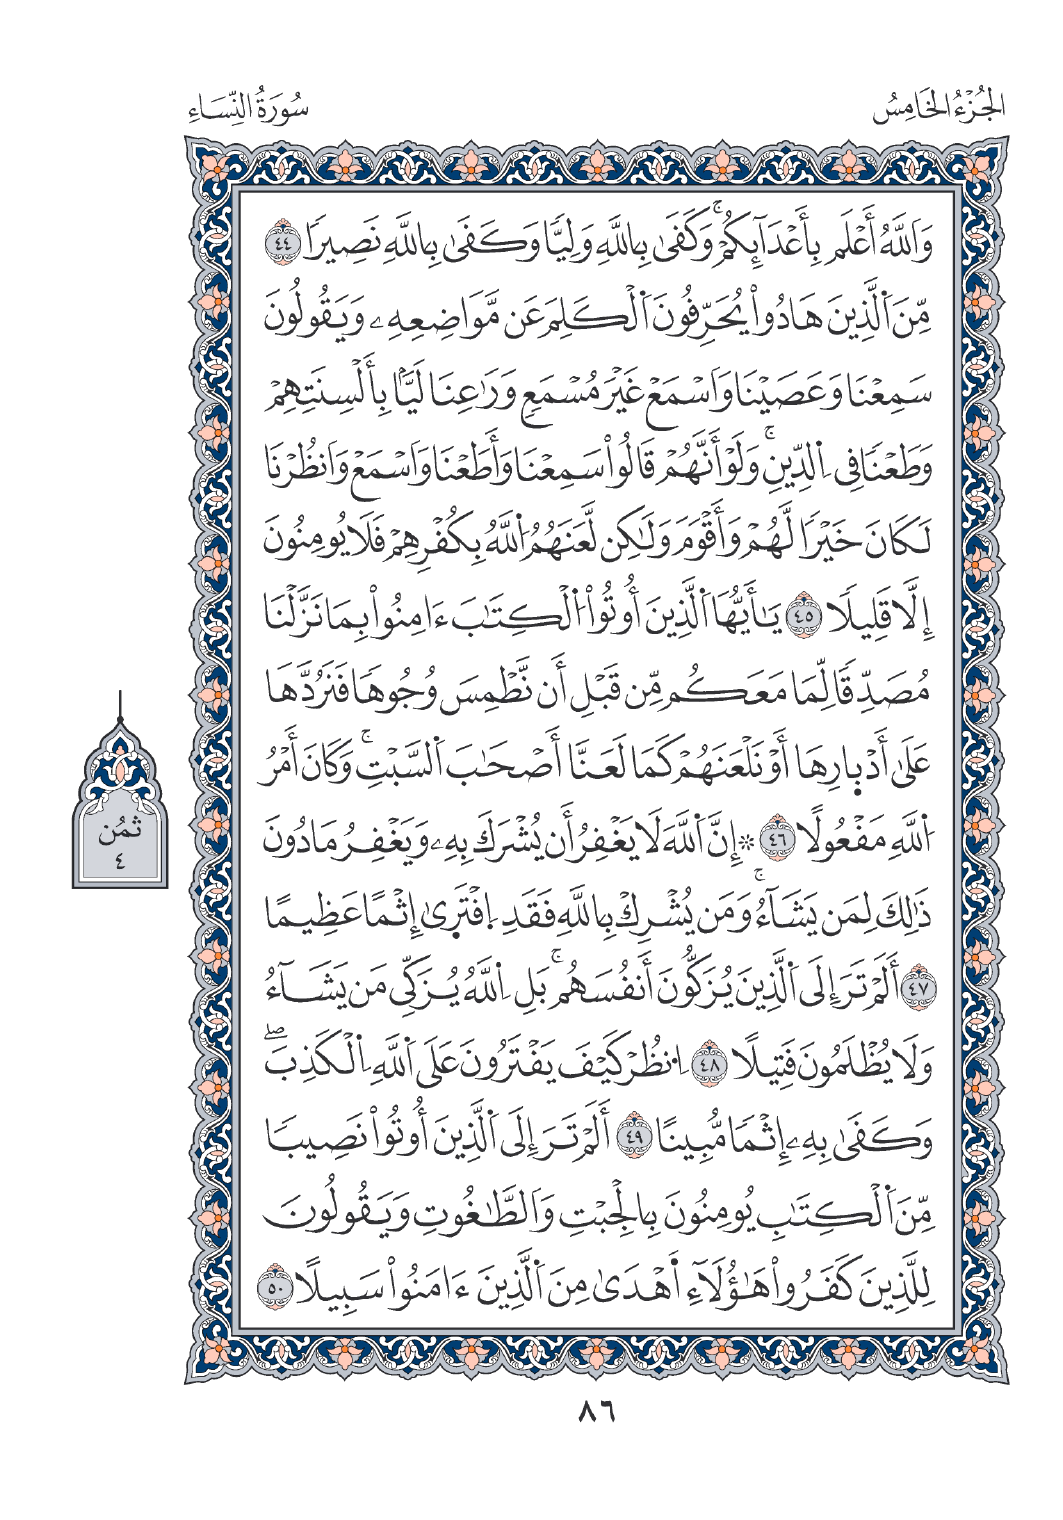 الجُزْءُ الخَامِسُ
سُورَةُ النِّسَاءِ
وَاَللَّهُ أَعْلَم بِأَعْدَآئِكُمْۚ وَكَفَىٰ بِاللَّهِ وَلِيّٗا وَكَفَىٰ بِاللَّهِ نَصِيرٗا ٤٤
مِّنَ اَلَّذِينَ هَادُواْ يُحَرِّفُونَ اَلْكَلِمَ عَن مَّوَاضِعِهِۦ وَيَقُولُونَ
سَمِعْنَا وَعَصَيْنَا وَاَسْمَعْ غَيْرَ مُسْمَعٖ وَرَٰعِنَا لَيّٗا بِأَلْسِنَتِهِمْ
وَطَعْنٗا فِى اِلدِّينِۚ وَلَوْ أَنَّهُمْ قَالُواْ سَمِعْنَا وَأَطَعْنَا وَاَسْمَعْ وَاَنظُرْنَا
لَكَانَ خَيْرٗا لَّهُمْ وَأَقْوَمَ وَلَٰكِن لَّعَنَهُمُ اُللَّهُ بِكُفْرِهِمْ فَلَا يُومِنُونَ
إِلَّا قَلِيلٗا ٤٥ يَٰأَيُّهَا اَلَّذِينَ أُوتُواْ اُلْكِتَٰبَ ءَامِنُواْ بِمَا نَزَّلْنَا
مُصَدِّقٗا لِّمَا مَعَكُم مِّن قَبْلِ أَن نَّطْمِسَ وُجُوهٗا فَنَرُدَّهَا
عَلَىٰ أَدْبٰرِهَا أَوْ نَلْعَنَهُمْ كَمَا لَعَنَّا أَصْحَٰبَ اَلسَّبْتِۚ وَكَانَ أَمْرُ
اُللَّهِ مَفْعُولًا ٤٦ ۞ إِنَّ اَللَّهَ لَا يَغْفِرُ أَن يُشْرَكَ بِهِۦ وَيَغْفِرُ مَا دُونَ
ذَٰلِكَ لِمَن يَشَآءُۚ وَمَن يُشْرِكْ بِاللَّهِ فَقَدِ اِفْتَرٜىٰ إِثْمًا عَظِيمًا
٤٧ أَلَمْ تَرَ إِلَى اَلَّذِينَ يُزَكُّونَ أَنفُسَهُمۚ بَلِ اِللَّهُ يُزَكِّى مَن يَشَآءُ
وَلَا يُظْلَمُونَ فَتِيلًا ٤٨ اِنظُرْ كَيْفَ يَفْتَرُونَ عَلَى اَللَّهِ اِلْكَذِبَۖ
وَكَفَىٰ بِهِۦ إِثْمٗا مُّبِينًا ٤٩ أَلَمْ تَرَ إِلَى اَلَّذِينَ أُوتُواْ نَصِيبٗا
مِّنَ اَلْكِتَٰبِ يُومِنُونَ بِالْجِبْتِ وَاَلطَّٰغُوتِ وَيَقُولُونَ
لِلَّذِينَ كَفَرُواْ هَٰؤُلَآءِ أَهْدَىٰ مِنَ اَلَّذِينَ ءَامَنُواْ سَبِيلًا ٥٠
ثمُن
٤
٨٦